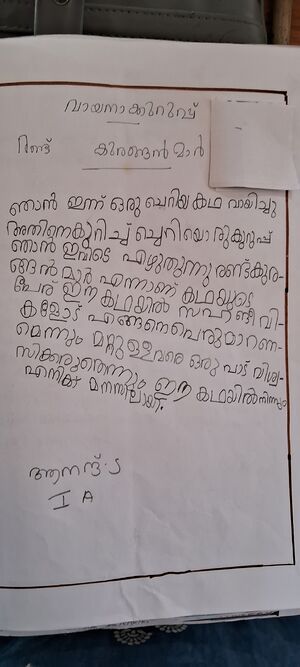 വായനാക്കുറുപ്പ്
രണ്ട് കുരങ്ങൻമാർ
ഞാൻ ഇന്ന് ഒരു ചെറിയ കഥ വായിച്ചു
അതിനെകുറിച്ച് ച്ചെറിയൊരുകുറുപ്പ്
ഞാൻ ഇവിടെ എഴുതുന്നു രണ്ട്കുര-
ങ്ങൻമാർ എന്നാണ് കഥയുടെ
പേര് ഈ കഥയിൽ സഹജീവി-
കളോട് എങ്ങനെപെരുമാറണ-
മെന്നും മറ്റുള്ളവരെ ഒരു പാട് വിശ്വ-
സിക്കരുതെന്നും ഈ കഥയിൽനിന്നും
എനിക്ക് മനസിലായി.
ആനന്ദ്.S
I A